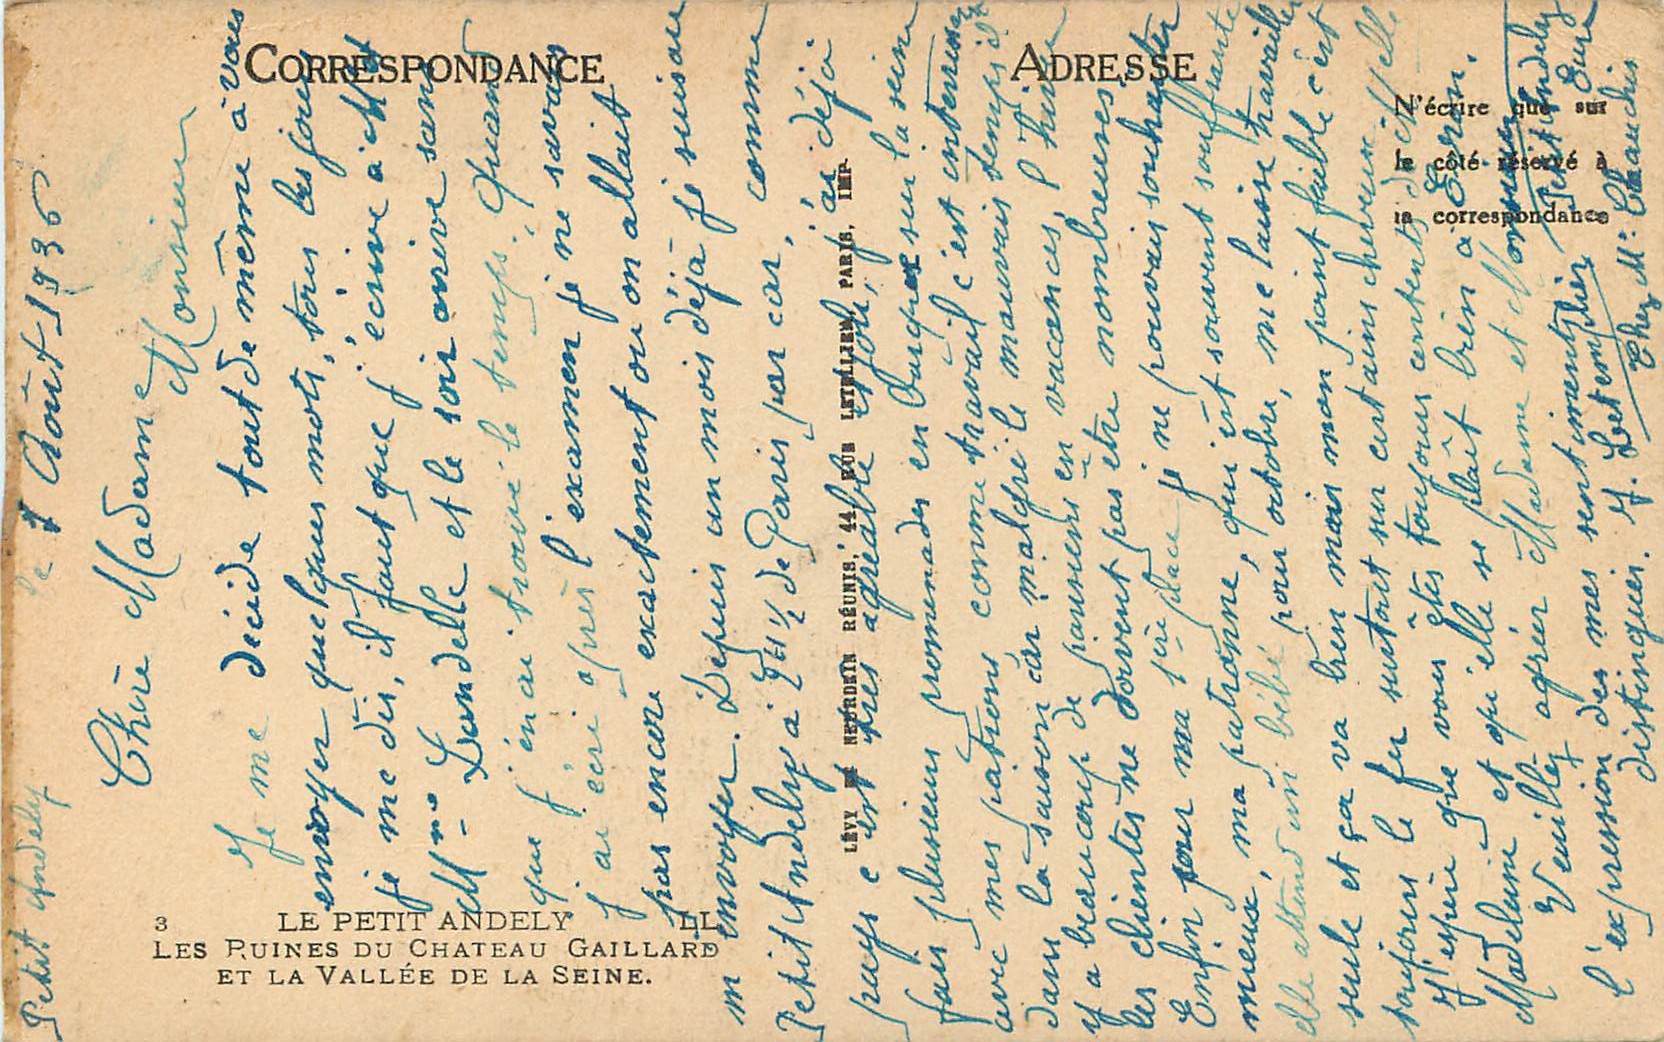 CORRESPONDANCE
ADRESSE
N'écrire que sur
le côté réservé à
la correspondance
LÉVY ET NEURDEIN RÉUNIS, 44 RUE LETELLIER, PARIS, IMP.
3 LE PETIT ANDELY LL
LES RUINES DU CHATEAU GAILLARD
ET LA VALLÉE DE LA SEINE.
Petit Andely le 1 Août 1936
Chère Madame
Monsieur
Je me décide tout de même à vous
envoyer quelques mots, tous les jours
je me dis, il faut que j'écrive à Mr et
Mme Landelle et le soir arrive sans
que j'en ai trouvé le temps. Quand
j'ai écri après l'examen je ne savais
pas encore exactement ou on allait
m'envoyer. Depuis un mois déjà je suis au
Petit Andely à 2H 1/2 de Paris par car, comme
pays c'est très agréable et joli, j'ai déjà
fais plusieurs promenades en barque sur la seine
avec mes patrons comme travail c'est interessant
dans la saison car malgré le mauvais temps il
y a beaucoup de panneurs en vacances, l'hiver
les clientes ne doivent pas etre nombreuses
Enfin pour ma 1ère place je ne pouvais souhaiter
mieux, ma patronne, qui est souvent souffrante
elle attend un bébé pour octobre, me laisse travailler
seule et ça va bien mais mon point faible c'est
toujours le fer surtout sur certaines cheveux
J'espère que vous êtes toujours contents de Melle
Madeleine et qu'elle se plait bien à
Veuillez agréer Madame et Monsieur
l'expression des mes sentiments
distingués. J. Letemplier
Chez Mr Chaudis
Petit Andely
Eure